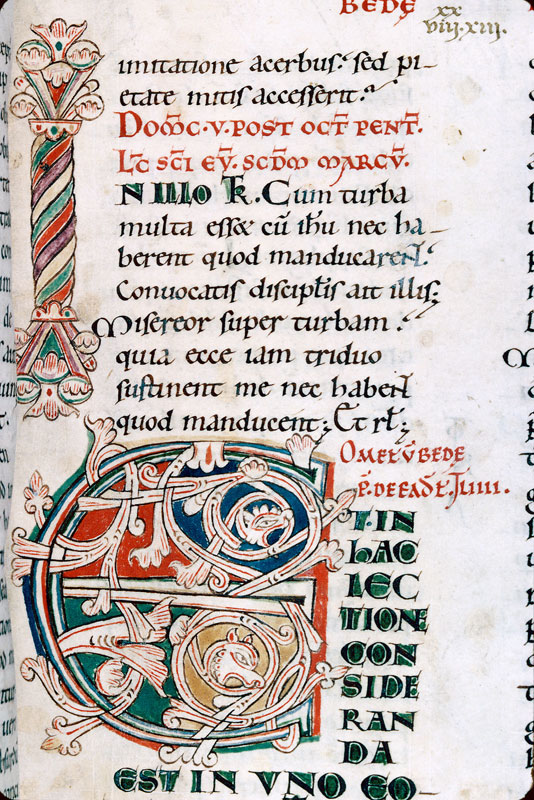 BEDĘ
xx
viij.xiii.
imitatione acerbus. sed pi-
etate mitis accesserit.
DOM̄C.V.POST OCT̄ PENT̄.
LC̄ SC̄I EV̄. SCD̄M MARCV̄.
IN ILLO T̄. Cum turba
multa esset cū ih̄u nec ha-
berent quod manducarent.
Convocatis discip̄lis ait illis;
Misereor super turbam.
quia ecce iam triduo
sustinent me nec habent
quod manducent; Et rl̄;
OMEL̄ V̄ BEDĘ
P̄. DE EAD̄ L̄.
ET.IN
HAC
LEC
TIONE
CON
SIDE
RAN
DA
EST IN VNO EO-